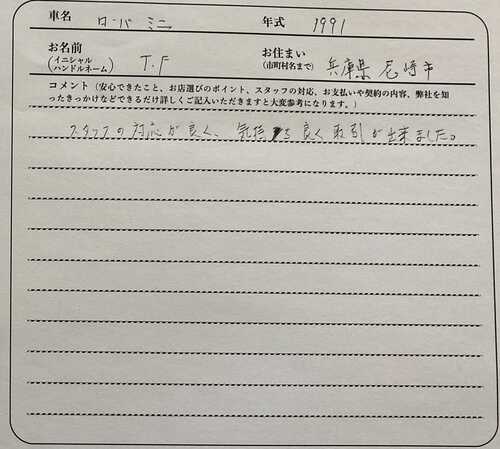 車名 ローバ ミニ 年式 1991
お名前 (イニシャル ハンドルネーム) T.F お住まい (市町村名まで) 兵庫県 尼崎市
コメント(安心できたこと、お店選びのポイント、スタッフの対応、お支払いや契約の内容、弊社を知
ったきっかけなどできるだけ詳しくご記入いただきますと大変参考になります。)
スタッフの対応が良く、気持ち良く取引が出来ました。